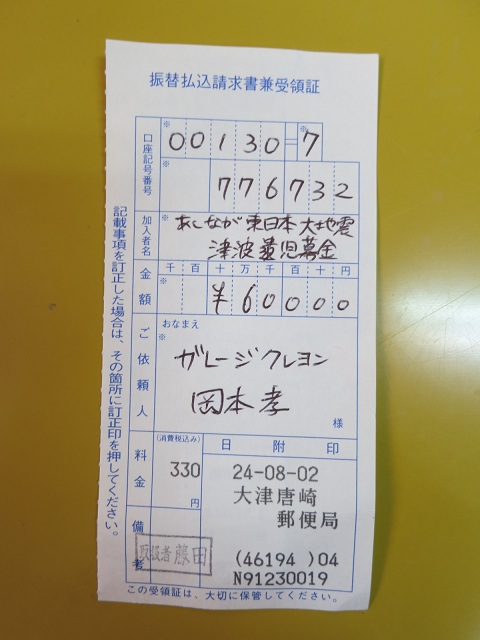 振替払込請求書兼受領証
口座記号番号
※ 00130=※7
※ 776732
加入者名
※ あしなが東日本大地震
津波遺児募金
金額
千 百 十 万 千 百 十 円
※ ¥60000
ご依頼人
おなまえ
※
ガレージクレヨン
岡本孝
様
料金
(消費税込み)
330
円
日附印
24-08-02
大津唐崎
郵便局
(46194 )04
N91230019
備考
取扱者 藤田
記載事項を訂正した場合は、その箇所に訂正印を押してください。
この受領証は、大切に保管してください。